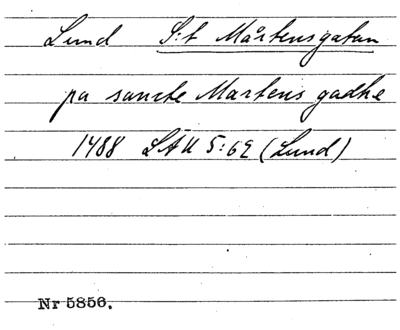 Lund S:t Mårtensgatan
pa sancte Martens gadhe
1488 LÄU 5:62 (Lund)
Nr 5856.